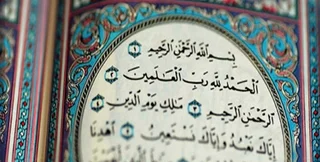 بِسْمِ اللَّهِ الرَّحْمَٰنِ الرَّحِيمِ ١
الْحَمْدُ لِلَّهِ رَبِّ الْعَالَمِينَ ٢
الرَّحْمَٰنِ الرَّحِيمِ ٣ مَالِكِ يَوْمِ الدِّينِ ٤
إِيَّاكَ نَعْبُدُ وَإِيَّاكَ نَسْتَعِينُ ٥ اهْدِنَا